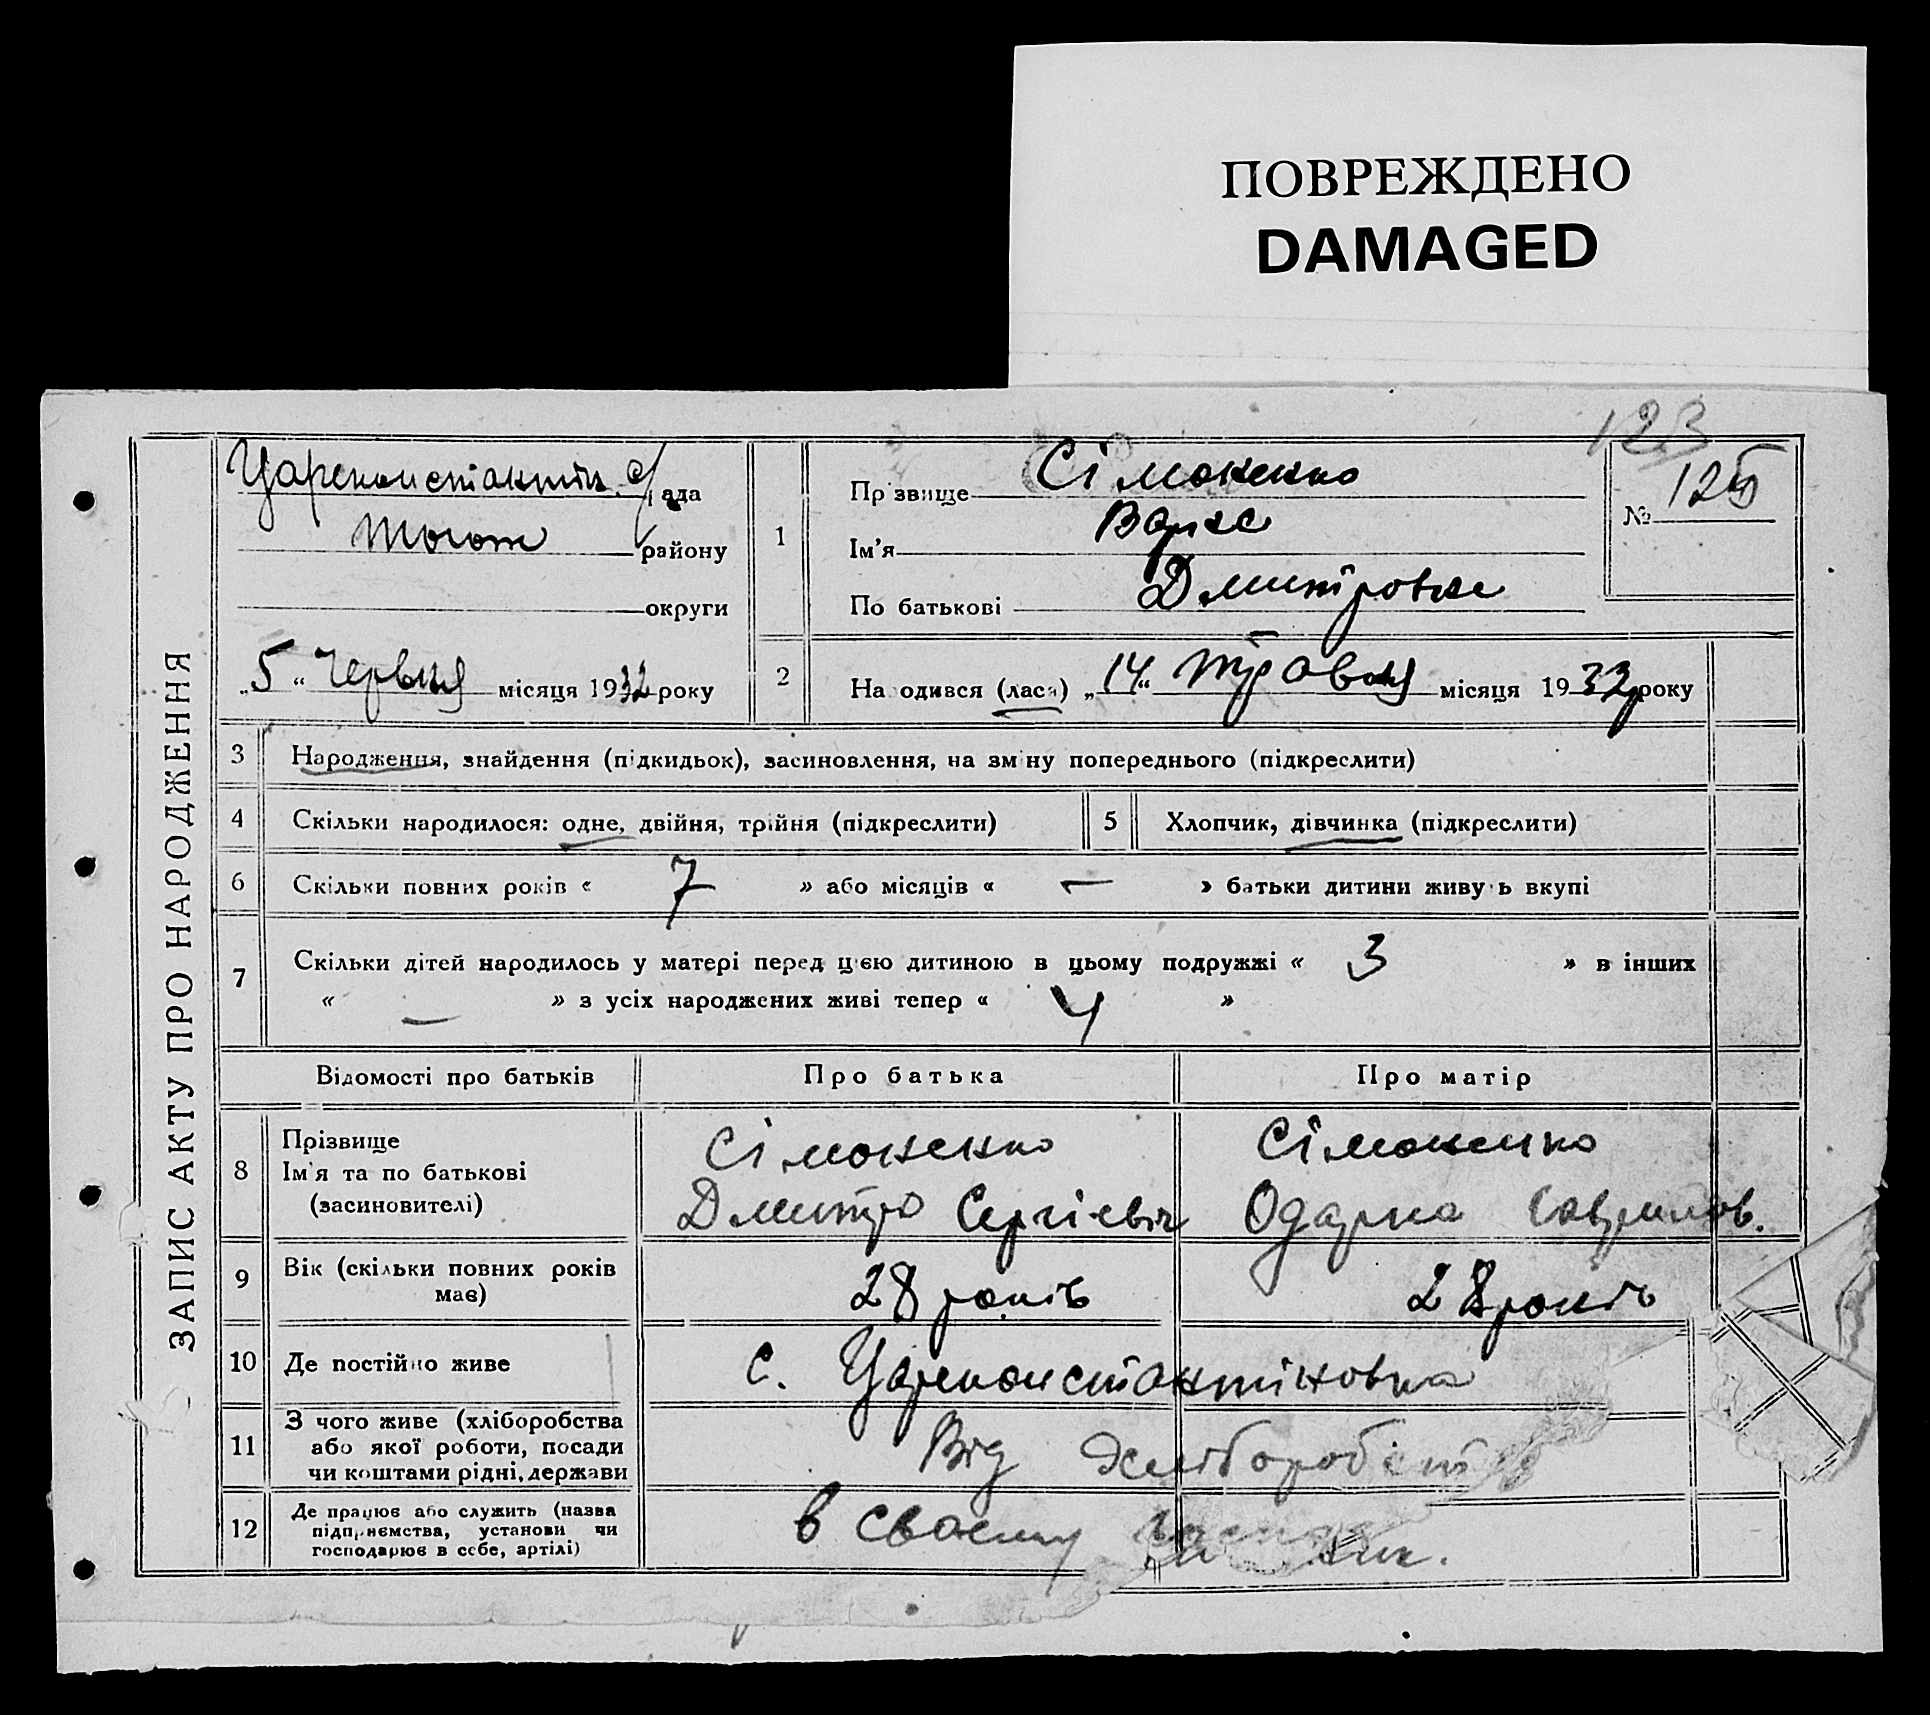 ПОВРЕЖДЕНО
DAMAGED
ЗАПИС АКТУ ПРО НАРОДЖЕННЯ
123
Цареконстантін. с/рада
району
округи
„5“ червня місяця 1932 року
1
Прізвище Сімоненко
Ім’я
По батькові Дмитровна
№ 125
2 Народився (лася) „14“ травня місяця 1932 року
3 Народження, знайдення (підкидьок), засиновлення, на зміну попереднього (підкреслити)
4 Скільки народилося: одне, двійня, трійня (підкреслити)
5 Хлопчик, дівчинка (підкреслити)
6 Скільки повних років « 7 » або місяців « — » батьки дитини живуть вкупі
7 Скільки дітей народилось у матері перед цією дитиною в цьому подружжі « 3 » в інших
« — » з усіх народжених живі тепер « 4 »
Відомості про батьків Про батька Про матір
8 Прізвище
Ім’я та по батькові
(засиновителі)
Сімоненко
Дмитро Сергієвіч
Сімоненко
Одарка Гаврилов.
9 Вік (скільки повних років
має)
28 років 28 років
10 Де постійно живе с. Цареконстантіновка
11 З чого живе (хліборобства
або якої роботи, посади
чи коштами рідні, держави
Від хліборобст
12 Де працює або служить (назва
підприємства, установи чи
господарює в себе, артілі)
в своєму